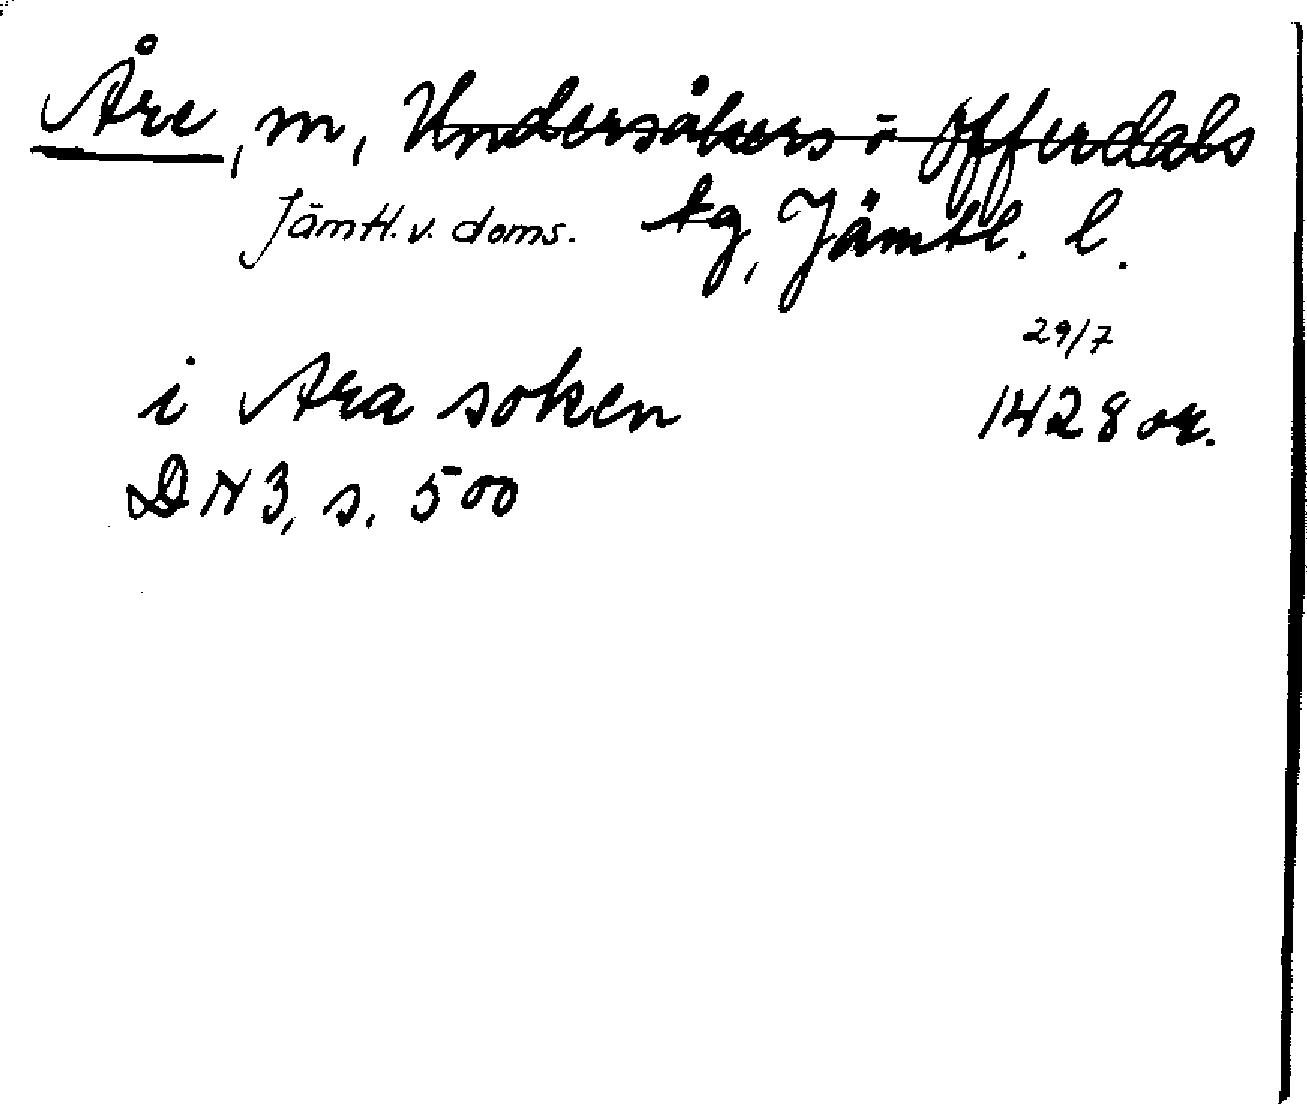 Åre, m, Undersåkers ö Offerdals
Jämtl. v. doms. tg, Jämtl. l.
29/7
i Ara soken 1428 or.
DN 3, s. 500